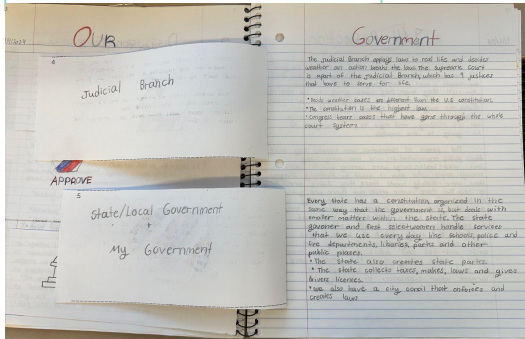 OUR
4
Judicial Branch
APPROVE
5
State/Local Government
+
My Government
Government
The Judicial Branch applys laws to real life and decides
weather an action breaks the law. The Supreme Court
is apart of the Judicial Branch, which has 9 justices
that have to serve for life.
weather cases are different than the U.S constitution.
• The constitution is the highest law
• Congress hears cases that have gone through the whole
court system
Every state has a constitution, organized in the
same way that the government is, but deals with
smaller matters within the state. The state
govener and first selectwomen handle services
that we use every day like schools, police and
fire departments, libaries, parks and other
public places.
• The state also creates state parks.
• The state collects taxes, makes, laws and gives
drivers licenses.
• We also have a city that enforces and
creates laws